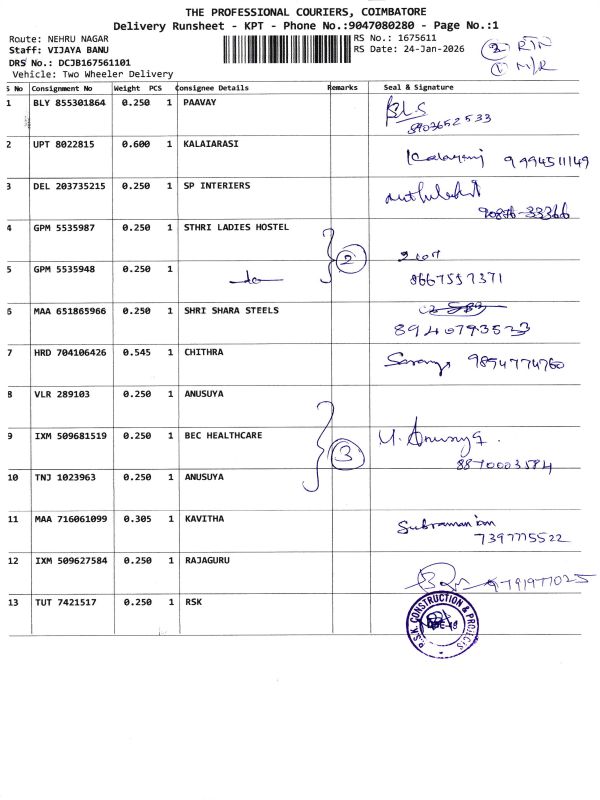 THE PROFESSIONAL COURIERS, COIMBATORE
Delivery Runsheet - KPT - Phone No.:9047080280 - Page No.:1
Route: NEHRU NAGAR
Staff: VIJAYA BANU
DRS No.: DCJB167561101
Vehicle: Two Wheeler Delivery
RS No.: 1675611
RS Date: 24-Jan-2026
② RTN
① M/R
S No Consignment No Weight PCS Consignee Details Remarks Seal & Signature
1 BLY 855301864 0.250 1 PAAVAY
8903652533
2 UPT 8022815 0.600 1 KALAIARASI
9994511149
3 DEL 203735215 0.250 1 SP INTERIERS
4 GPM 5535987 0.250 1 STHRI LADIES HOSTEL
②
5 GPM 5535948 0.250 1 do 8667557371
6 MAA 651865966 0.250 1 SHRI SHARA STEELS
8940793523
7 HRD 704106426 0.545 1 CHITHRA
8 VLR 289103 0.250 1 ANUSUYA
9 IXM 509681519 0.250 1 BEC HEALTHCARE ③ M. Anusuya.
8870003584
10 TNJ 1023963 0.250 1 ANUSUYA
11 MAA 716061099 0.305 1 KAVITHA Subramaniam
7397775522
12 IXM 509627584 0.250 1 RAJAGURU
13 TUT 7421517 0.250 1 RSK
R.S.K. CONSTRUCTION & PROJECTS